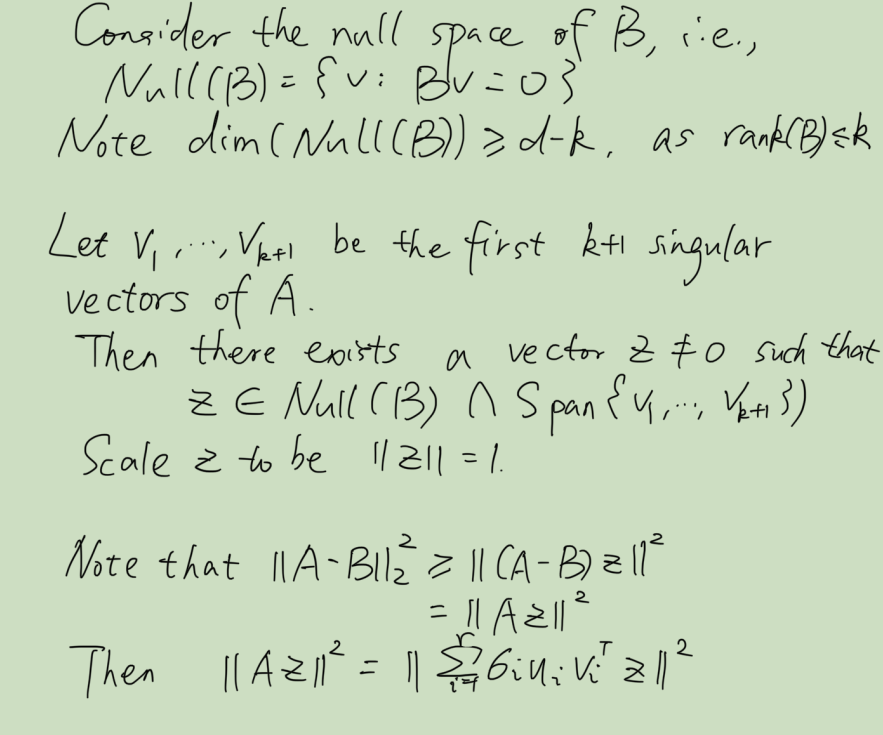 Consider the null space of B, i.e.,
Null(B) = {v: Bv = 0}
Note dim(Null(B)) ≥ d-k, as rank(B)≤k
Let V₁, ..., Vₖ₊₁ be the first k+1 singular
vectors of A.
Then there exists a vector z ≠ 0 such that
z ∈ Null(B) ∩ Span{v₁, ..., Vₖ₊₁})
Scale z to be ||z|| = 1.
Note that ||A-B||₂² ≥ ||(A-B)z||²
= ||Az||²
Then ||Az||² = ||∑ᵢ₌₁ʳ σᵢuᵢvᵢᵀz||²